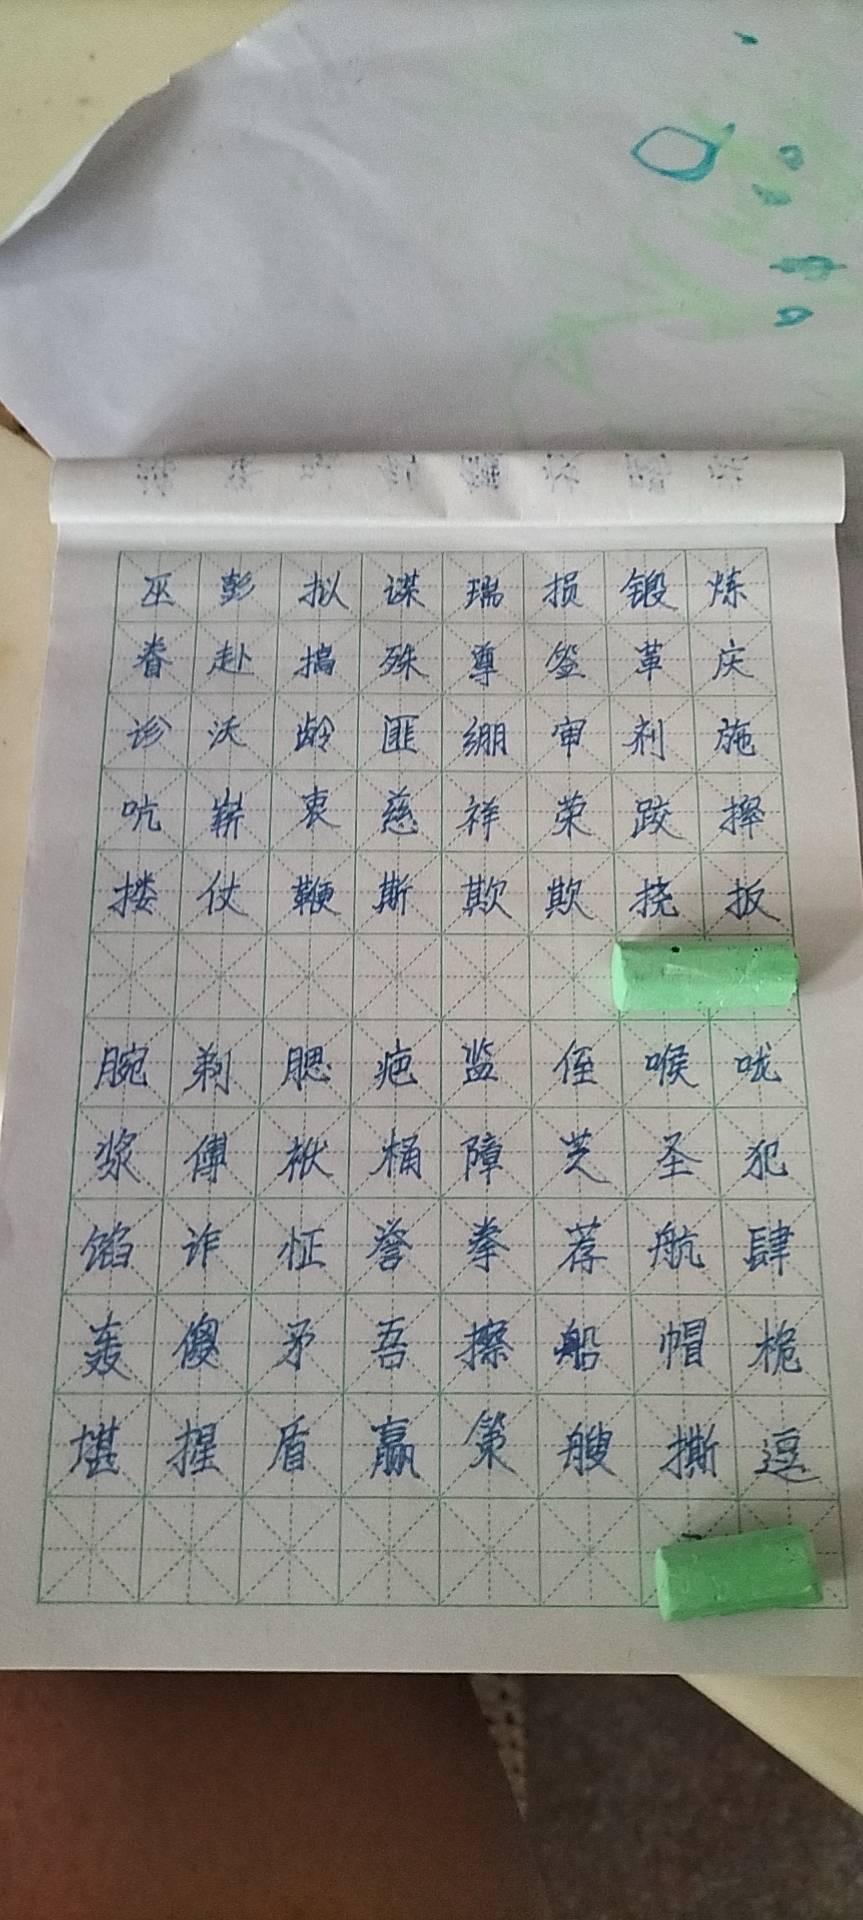 巫 彭 拟 谋 瑞 损 锻 炼
眷 赴 捣 殊 尊 签 革 庆
诊 沃 龄 匪 绷 审 剂 施
吭 崭 衷 慈 祥 荣 跤 摔
搂 仗 鞭 斯 欺 欺 挠 扳
腕 剃 腮 疤 监 侄 喉 咙
浆 傅 袱 桶 障 芝 圣 犯
馅 诈 怔 誉 拳 荐 航 肆
轰 傻 矛 吾 擦 船 帽 桅
堪 握 盾 赢 策 艘 撕 逗